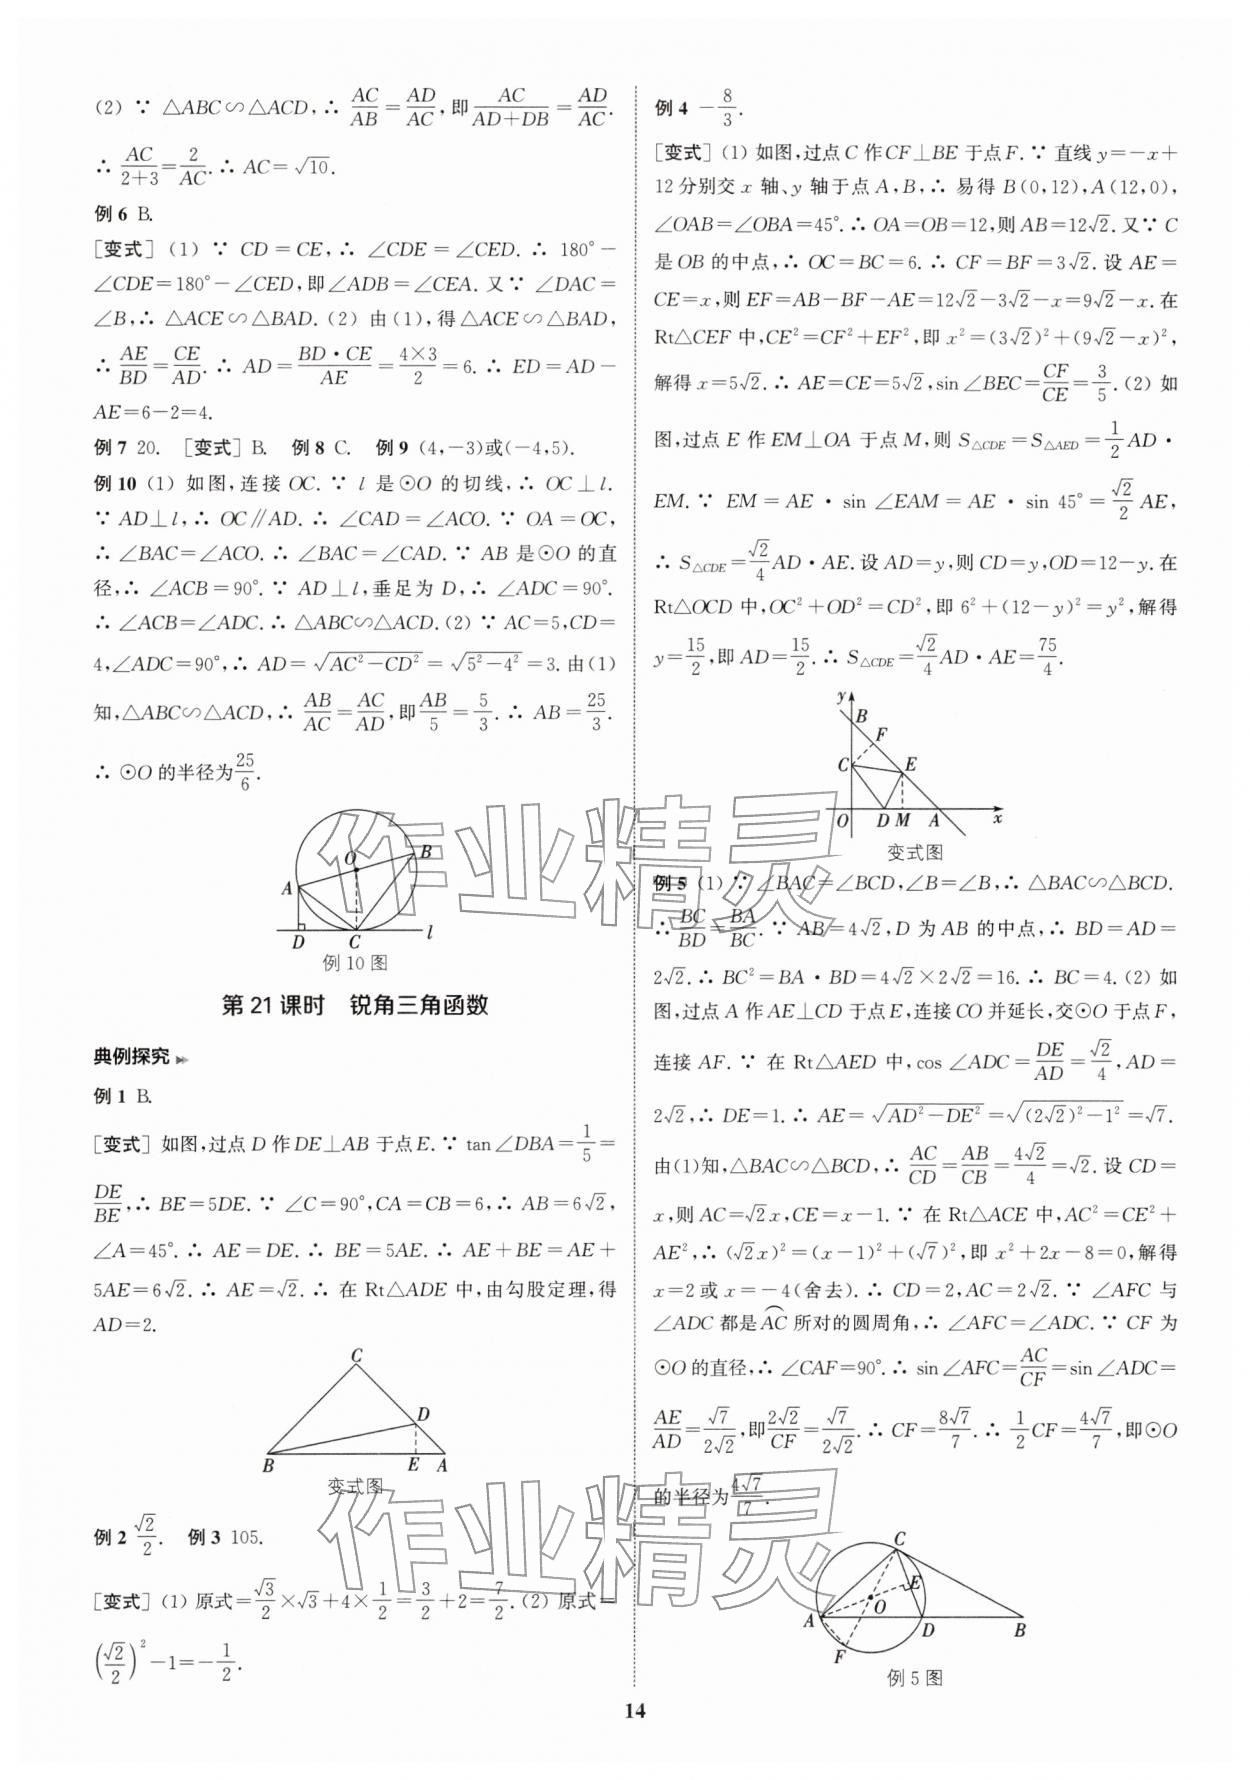 (2) ∵ △ABC∽△ACD,∴ AC/AB=AD/AC,即AC/(AD+DB)=AD/AC.
∴ AC/(2+3)=2/AC.∴ AC=√10.
例6 B.
[变式](1) ∵ CD=CE,∴ ∠CDE=∠CED.∴ 180°-
∠CDE=180°-∠CED,即∠ADB=∠CEA.又∵ ∠DAC=
∠B,∴ △ACE∽△BAD.(2) 由(1),得△ACE∽△BAD,
∴ AE/BD=CE/AD.∴ AD=BD·CE/AE=4×3/2=6.∴ ED=AD-
AE=6-2=4.
例7 20. [变式]B. 例8 C. 例9 (4,-3)或(-4,5).
例10 (1) 如图,连接OC.∵ l是⊙O的切线,∴ OC⊥l.
∵ AD⊥l,∴ OC∥AD.∴ ∠CAD=∠ACO.∵ OA=OC,
∴ ∠BAC=∠ACO.∴ ∠BAC=∠CAD.∵ AB是⊙O的直
径,∴ ∠ACB=90°.∵ AD⊥l,垂足为D,∴ ∠ADC=90°.
∴ ∠ACB=∠ADC.∴ △ABC∽△ACD.(2) ∵ AC=5,CD=
4,∠ADC=90°,∴ AD=√(AC²-CD²)=√(5²-4²)=3.由(1)
知,△ABC∽△ACD,∴ AB/AC=AC/AD,即AB/5=5/3.∴ AB=25/3.
∴ ⊙O的半径为25/6.
O
B
A
D
C
l
例10图
第21课时 锐角三角函数
典例探究
例1 B.
[变式]如图,过点D作DE⊥AB于点E.∵ tan∠DBA=1/5=
DE/BE,∴ BE=5DE.∵ ∠C=90°,CA=CB=6,∴ AB=6√2,
∠A=45°.∴ AE=DE.∴ BE=5AE.∴ AE+BE=AE+
5AE=6√2.∴ AE=√2.∴ 在Rt△ADE中,由勾股定理,得
AD=2.
C
D
B
E
A
变式图
例2 √2/2. 例3 105.
[变式](1) 原式=√3/2×√3+4×1/2=3/2+2=7/2.(2) 原式=
(√2/2)²-1=-1/2.
例4 -8/3.
[变式](1) 如图,过点C作CF⊥BE于点F.∵ 直线y=-x+
12分别交x轴、y轴于点A,B,∴ 易得B(0,12),A(12,0),
∠OAB=∠OBA=45°.∴ OA=OB=12,则AB=12√2.又∵ C
是OB的中点,∴ OC=BC=6.∴ CF=BF=3√2.设AE=
CE=x,则EF=AB-BF-AE=12√2-3√2-x=9√2-x.在
Rt△CEF中,CE²=CF²+EF²,即x²=(3√2)²+(9√2-x)²,
解得x=5√2.∴ AE=CE=5√2,sin∠BEC=CF/CE=3/5.(2) 如
图,过点E作EM⊥OA于点M,则S△CDE=S△AED=1/2AD·
EM.∵ EM=AE·sin∠EAM=AE·sin 45°=√2/2AE,
∴ S△CDE=√2/4AD·AE.设AD=y,则CD=y,OD=12-y.在
Rt△OCD中,OC²+OD²=CD²,即6²+(12-y)²=y²,解得
y=15/2,即AD=15/2.∴ S△CDE=√2/4AD·AE=75/4.
y
B
F
C
E
O
D
M
A
x
变式图
例5 (1) ∵ ∠BAC=∠BCD,∠B=∠B,∴ △BAC∽△BCD.
∴ BC/BD=BA/BC.∵ AB=4√2,D为AB的中点,∴ BD=AD=
2√2.∴ BC²=BA·BD=4√2×2√2=16.∴ BC=4.(2) 如
图,过点A作AE⊥CD于点E,连接CO并延长,交⊙O于点F,
连接AF.∵ 在Rt△AED中,cos∠ADC=DE/AD=√2/4,AD=
2√2,∴ DE=1.∴ AE=√(AD²-DE²)=√((2√2)²-1²)=√7.
由(1)知,△BAC∽△BCD,∴ AC/CD=AB/CB=4√2/4=√2.设CD=
x,则AC=√2x,CE=x-1.∵ 在Rt△ACE中,AC²=CE²+
AE²,∴ (√2x)²=(x-1)²+(√7)²,即x²+2x-8=0,解得
x=2或x=-4(舍去).∴ CD=2,AC=2√2.∵ ∠AFC与
∠ADC都是⌒AC所对的圆周角,∴ ∠AFC=∠ADC.∵ CF为
⊙O的直径,∴ ∠CAF=90°.∴ sin∠AFC=AC/CF=sin∠ADC=
AE/AD=√7/2√2,即2√2/CF=√7/2√2.∴ CF=8√7/7.∴ 1/2CF=4√7/7,即⊙O
的半径为4√7/7.
C
E
O
A
D
B
F
例5图
14
作业精灵
作业精灵